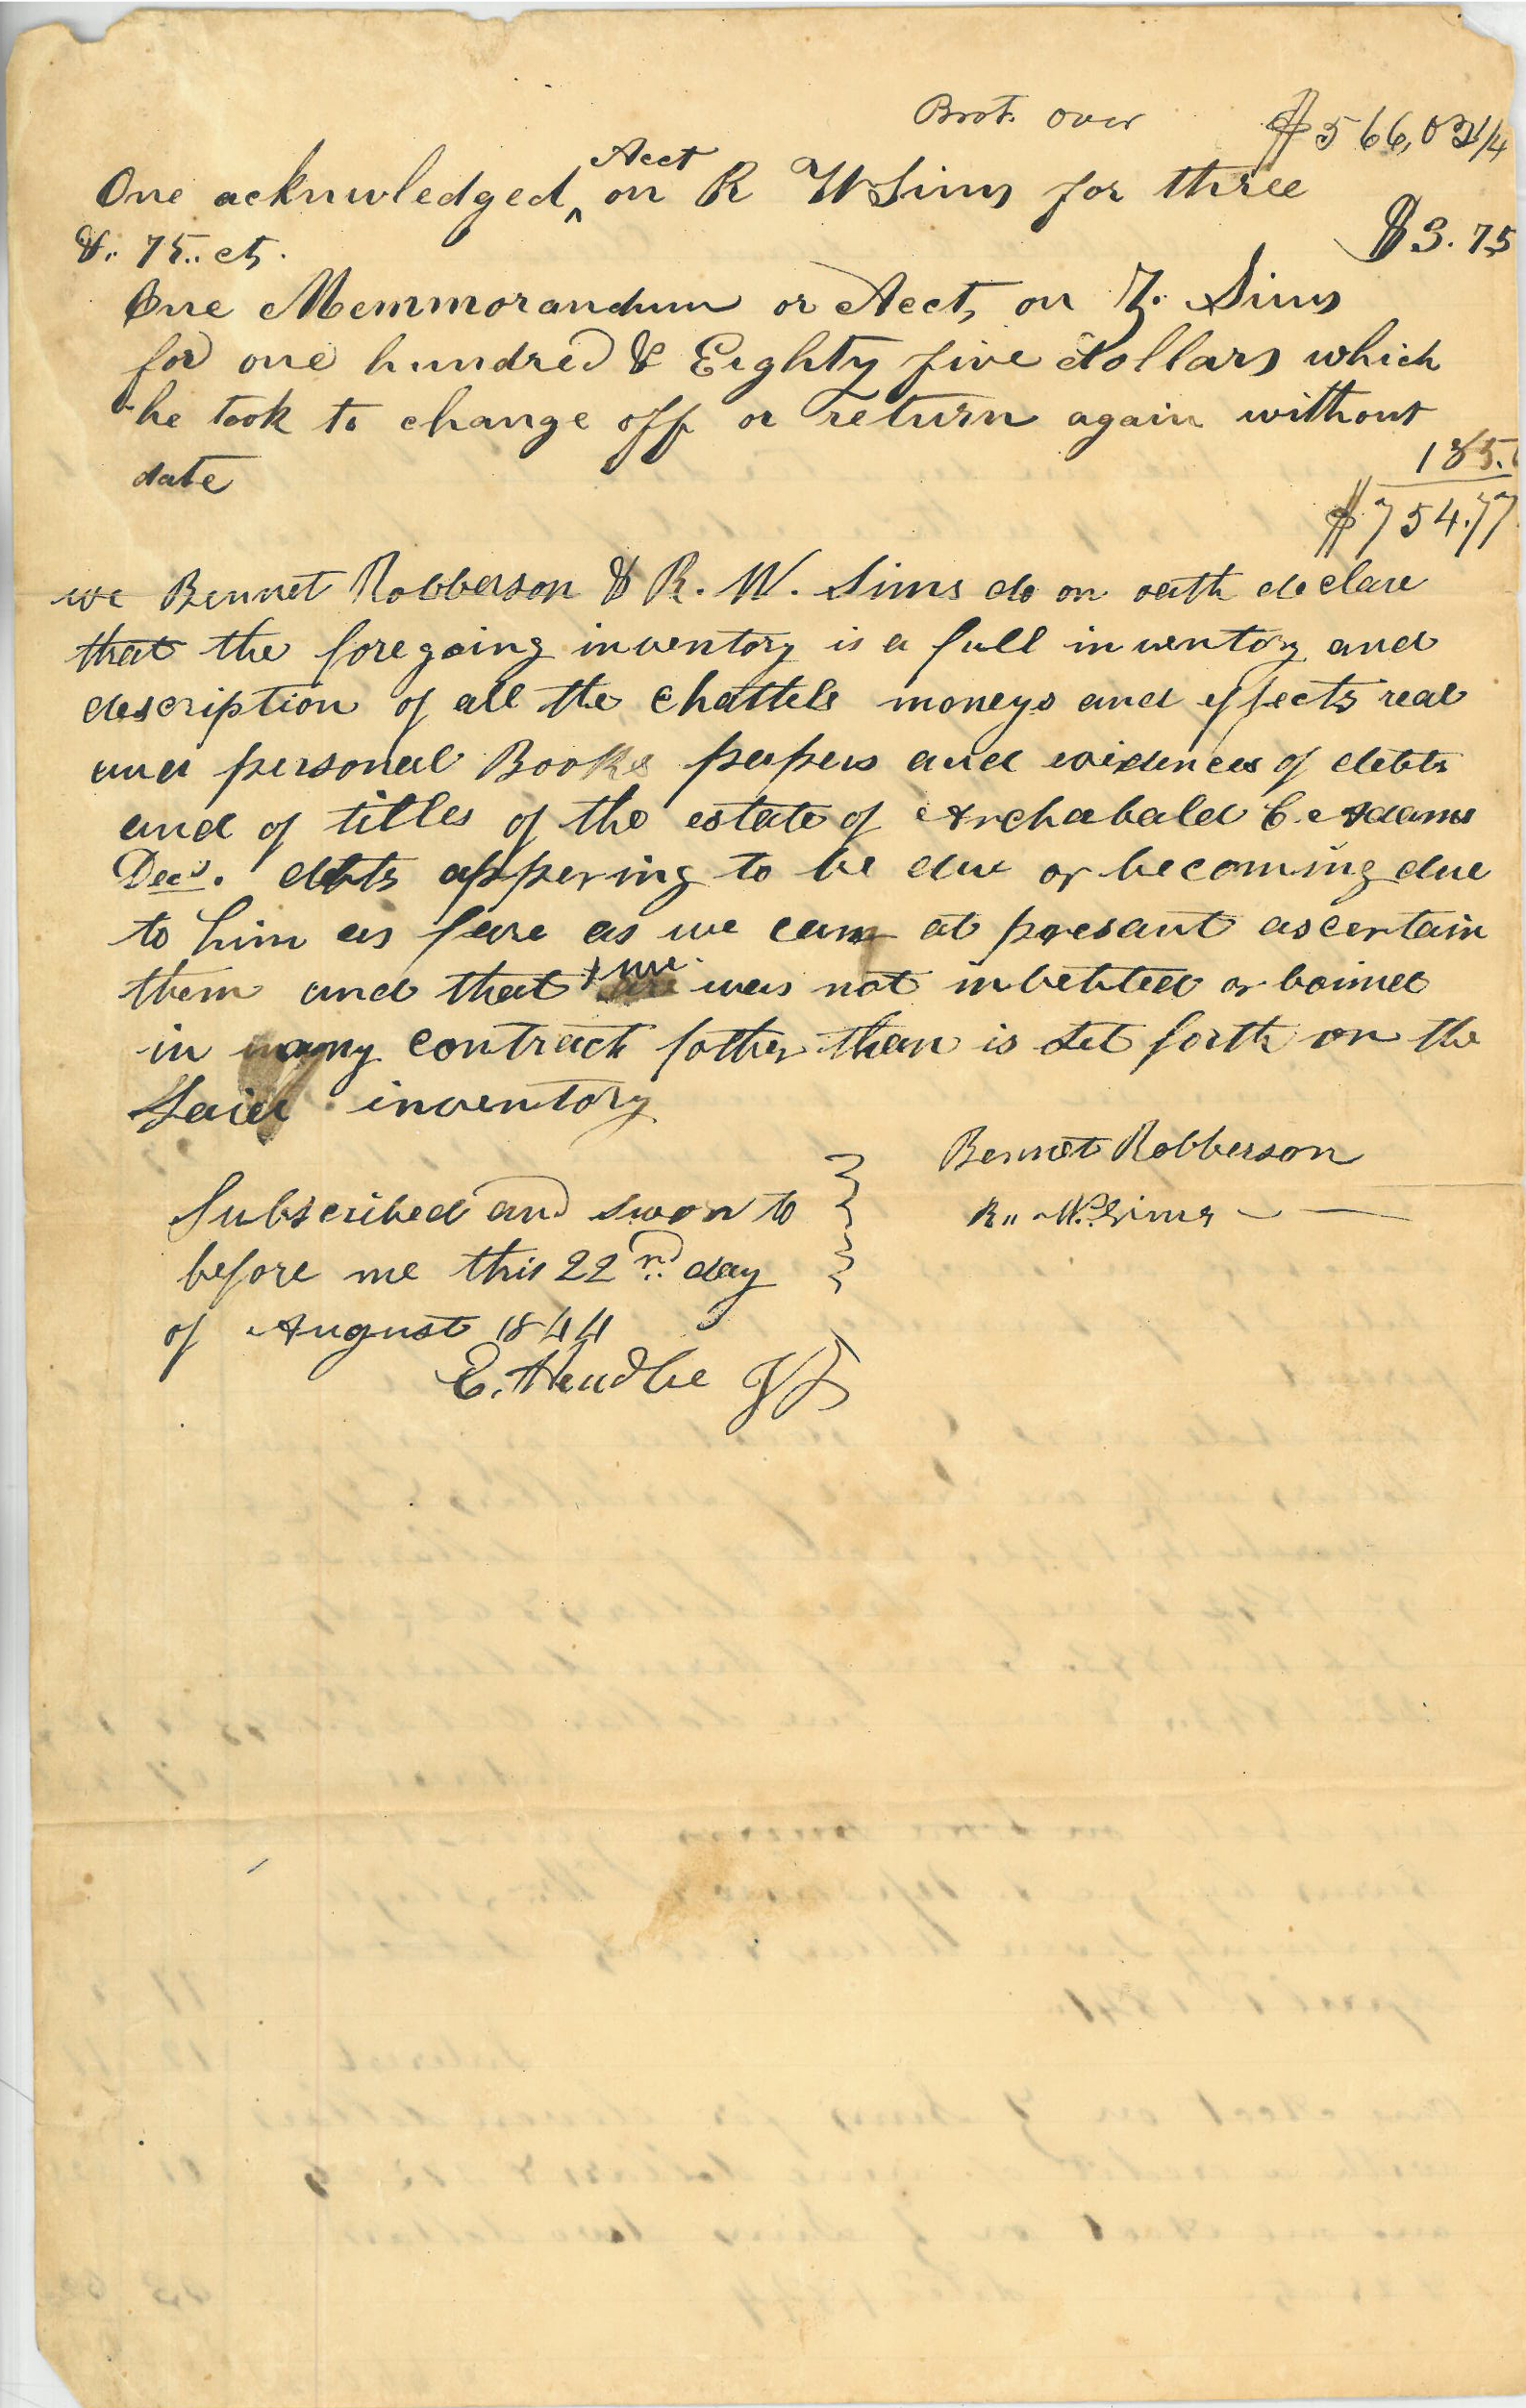 Brot. over $566,02 1/4
One acknowledged ^ Acct on R W Sims for three
&.. 75.. ct. $3.75
One Memmorandum or Acct, on Z. Sims
for one hundred & Eighty five dollars which
he took to change off or return again without
date 185.
$754.77
we Bennet Robberson & R. W. Sims do on oath declare
that the foregoing inventory is a full inventory and
description of all the chattels moneys and effects real
and personal Books papers and evidences of debts
and of titles of the estate of Archabald C. Adams
Decd. debts appering to be due or becoming due
to him as fare as we can at presant ascertain
them and that we was not indebted or boined
in any contract father than is set forth on the
Said inventory
Bennet Robberson
Subscribed and swon to
R.. W. Sims
before me this 22nd day
of August 1844
E. Headlee JP